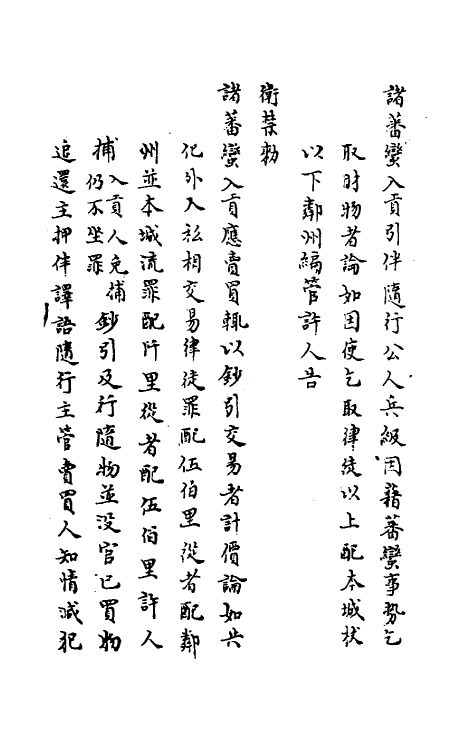 諸蕃蠻入貢引伴隨行公人兵級因藉蕃蠻事勢乞
取財物者論如因使乞取律徒以上配本城杖
以下鄰州編管許人告
衛禁勑
諸蕃蠻入貢應賣買輒以鈔引交易者計價論如共
化外人私相交易律徒罪配伍伯里從者配鄰
州並本城流罪配阡里從者配伍伯里許人
捕入貢人免捕仍不坐罪鈔引及行隨物並没官已買物
追還主押伴譯語隨行主管賣買人知情減犯